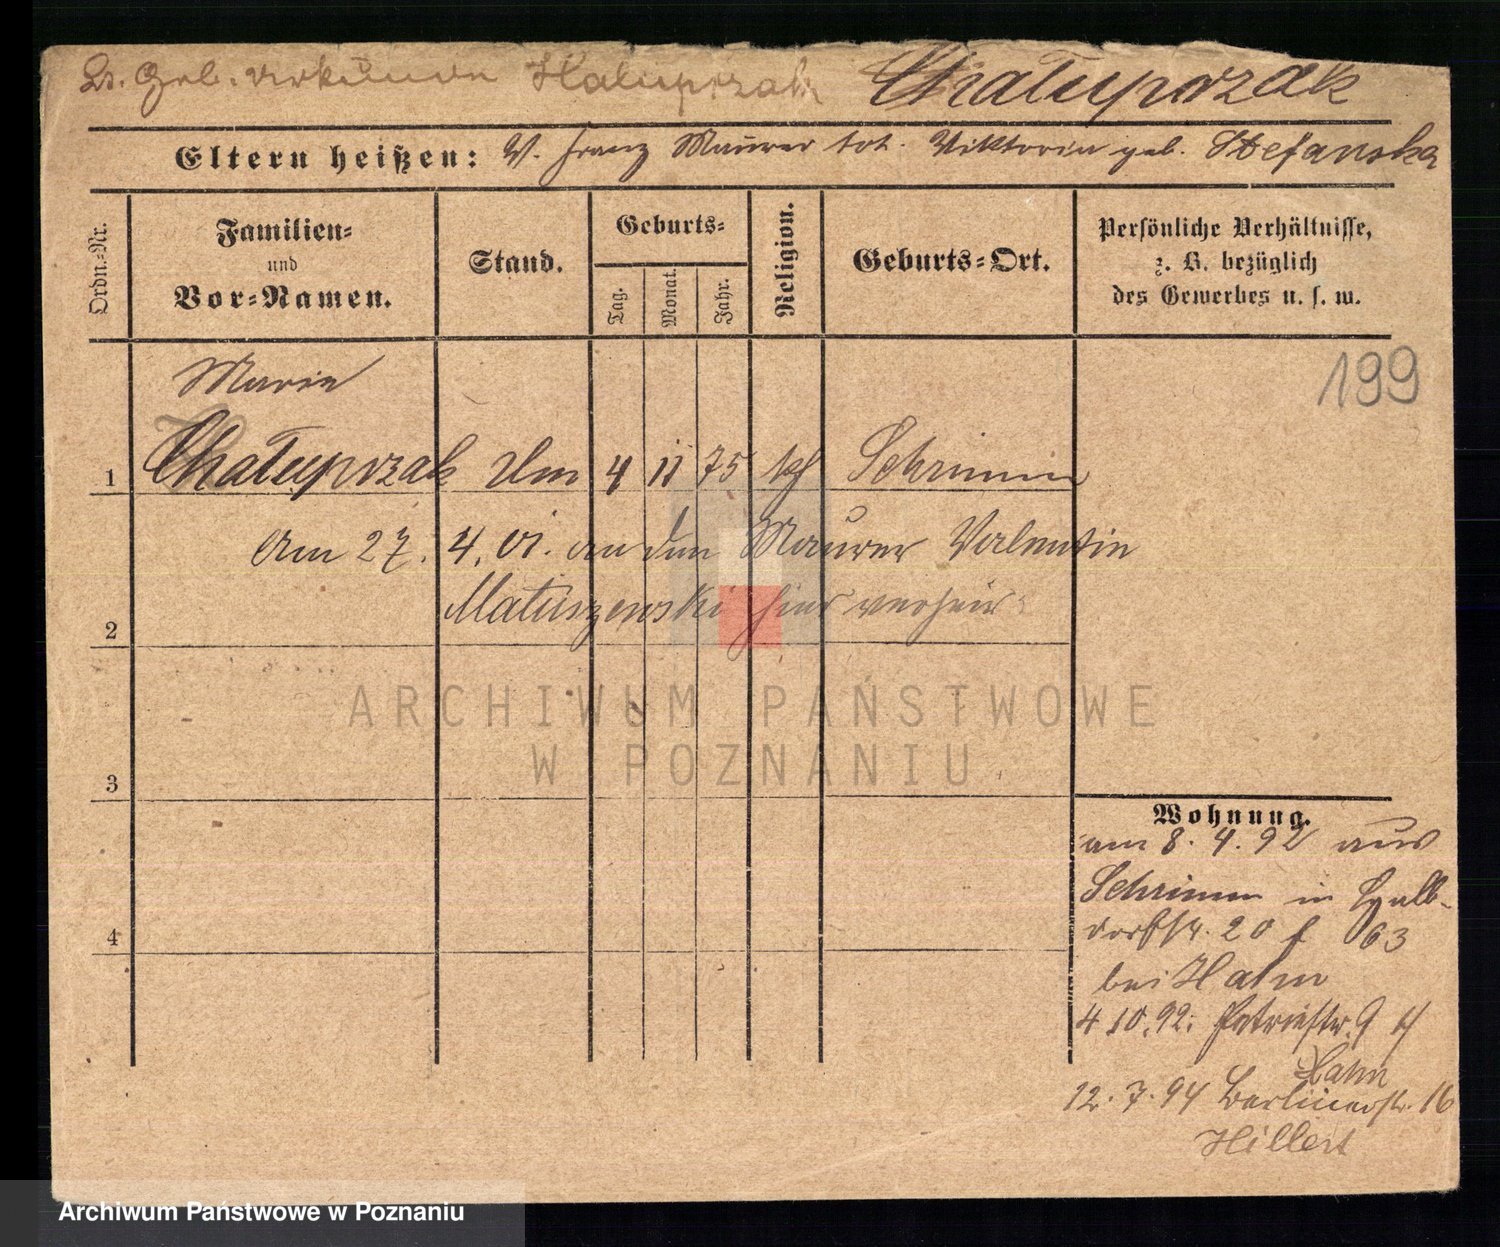 Lt. Geb. Urkunde Haluprzak Chałuprzak
Eltern heißen: V. Franz Maurer tot. Viktoria geb. Stefanska
Ordn.-Nr.
Familien-
und
Vor-Namen.
Stand.
Geburts-
Tag.
Monat.
Jahr.
Religion.
Geburts-Ort.
Persönliche Verhältnisse,
z. B. bezüglich
des Gewerbes u. s. w.
199
Marie
1 Chałuprzak 4 11 75 kh Schrimm
Am 27. 4. 01. an den Maurer Valentin
Matuszewski hier verheir
2
3
4
Wohnung.
am 8. 4. 92 aus
Schrimm in Halb-
dorfstr. 20 f 63
bei Hahn
4 10. 92. Patriestr. 9
Hahn
12. 7. 94 Berlinerstr. 16
Hillert
ARCHIWUM PAŃSTWOWE
W POZNANIU
Archiwum Państwowe w Poznaniu